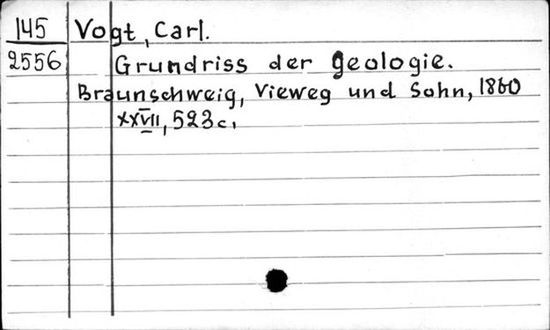 145 Vogt, Carl.
2556 Grundriss der Geologie.
Braunschweig, Vieweg und Sohn, 1860
XXVII, 523 c.